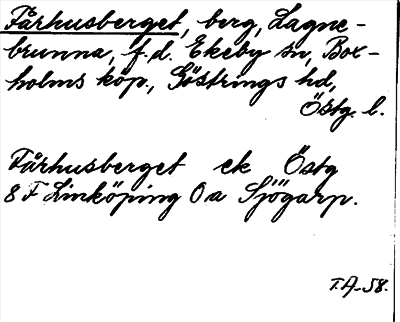 Fårhusberget, berg, Lagne-
brunna, f.d. Ekeby sn, Box-
holms köp., Göstrings hd,
Östg. l.
Fårhusberget ek Östg
8 F Linköping 0 a Sjögarp.
T.A-58.